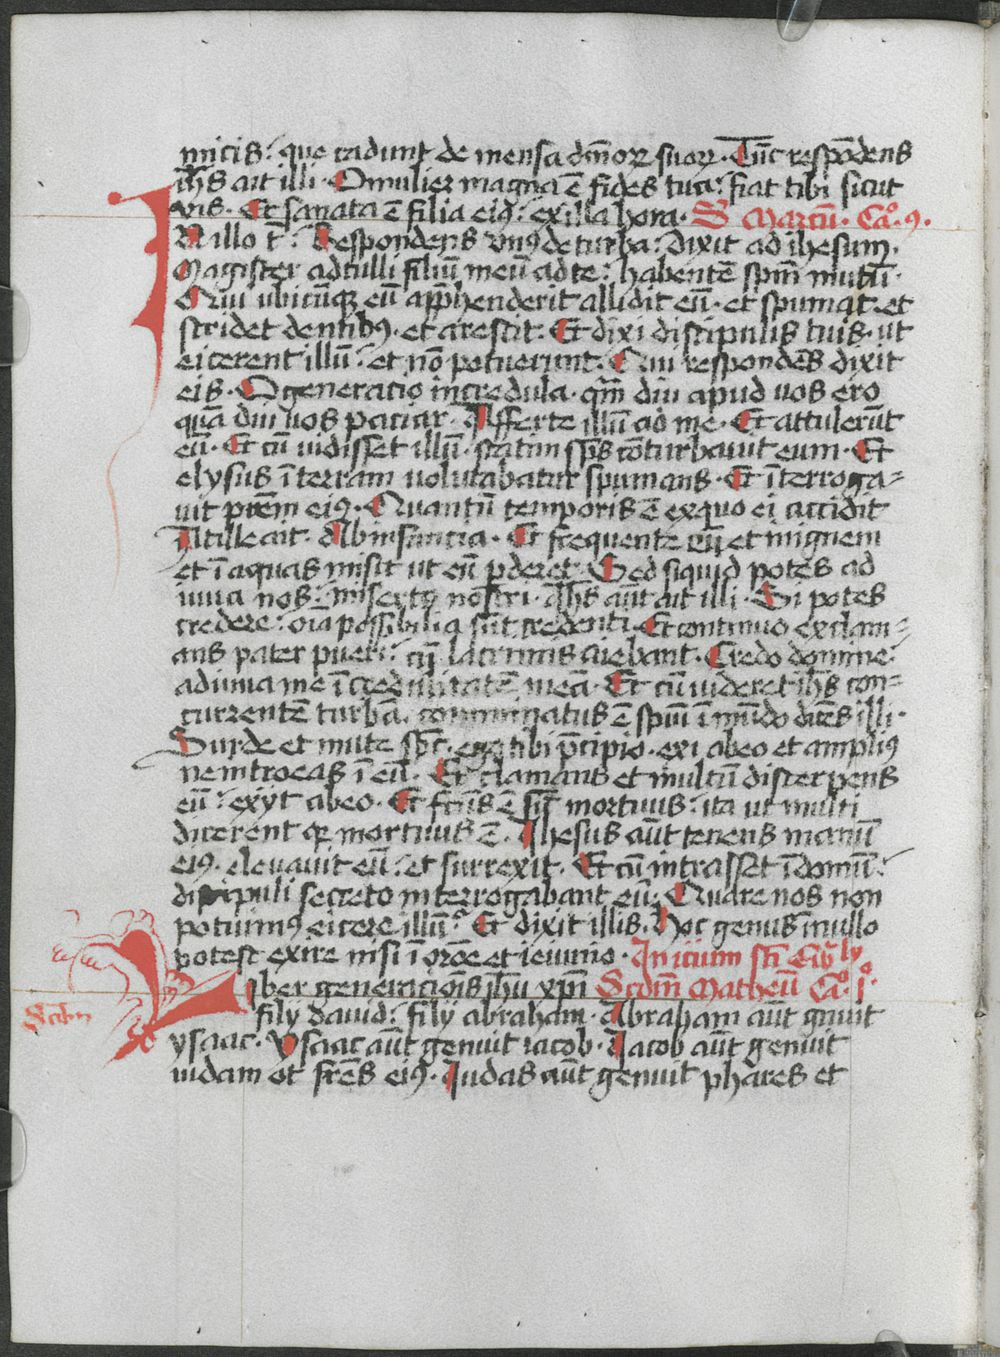 micis: que cadunt de mensa dn̄orꝝ suorꝝ. Tūc respōdens
ih̄s ait illi. O mulier magna ē fides tua: fiat tibi sicut
vis. Et sanata ē filia eiꝯ: ex illa hora. S Marcū. Ca°. 9.
IN illo t̄: Respondens vnꝯ de turba: dixit ad ihesum.
Magister adtulli filiū meū ad te: habentē spm̄ mutū.
Qui ubicūqꝫ eū app̄henderit allidit eū. et spumat. et
stridet dentibꝯ. et arescit. Et dixi discipulis tuis. ut
eicerent illū: et nō potuerunt. Qui respondēs dixit
eis. O generatio incredula. qm̄ diu apud vos ero
quādiu vos paciar. Afferte illū ad me. Et attulerūt
eū. Et cū vidisset illū. statim sps̄ cōturbavit eum. Et
elysus ī terram volutabatur spumans. Et īterroga=
vit prēm eiꝯ. Quantū temporis ē ex quo ei accidit
At ille ait. Ab infancia. Et frequente eū et in ignem
et ī aquas misit ut eū ꝑderet. Sed siquid potes ad
iuva nos: miserto nostri. Ih̄s aūt ait illi. Si potes
credere: oīa possibilia sūt credenti. Et continuo exclam=
ans pater pueri: cū lacrimis aiebant. Credo domine:
adiuva me īcredulitatē meā. Et cū uideret ih̄s con=
currentē turbā. comminatus ē spūi īmūdo dicēs illi.
Surde et mute spc̄. ego tibi p̄cipio. exi abeo et ampliꝯ
ne introeas ī eū. Et clamans et multū discerpens
eū: exijt abeo. Et fcūs ē sic̄ mortuus: ita ut multi
dicerent qꝫ mortuus ē. Ihesus aūt tenens manū
eiꝯ. elevavit eū: et surrexit. Et cū intrasset ī domū:
discipuli secreto interrogabant eū. Quare nos non
potuimꝯ eicere illū? Et dixit illis. Hoc genus ī nullo
potest exire nisi ī orōe et ieiunio. Inicium scī Ewly
Liber generacōis ihū xpī Scdm̄ Matheū Ca°. j°.
filij david: filij abraham. Abraham aūt gēuit
ysaac. Ysaac aūt genuit iacob. Iacob aūt genuit
iudam et frēs eiꝯ. Iudas aūt genuit phares et